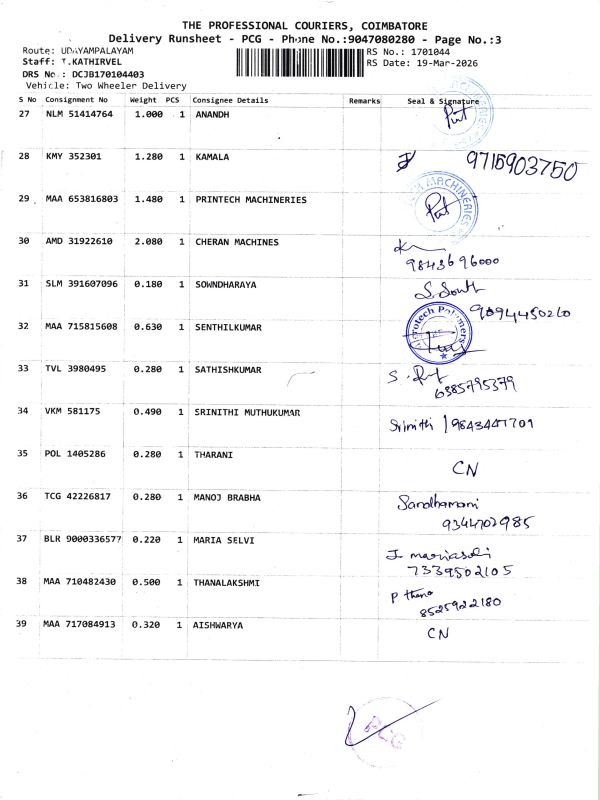 THE PROFESSIONAL COURIERS, COIMBATORE
Delivery Runsheet - PCG - Phone No.:9047080280 - Page No.:3
Route: UDAYAMPALAYAM RS No.: 1701044
Staff: T.KATHIRVEL RS Date: 19-Mar-2026
DRS No.: DCJB170104403
Vehicle: Two Wheeler Delivery
S No Consignment No Weight PCS Consignee Details Remarks Seal & Signature
27 NLM 51414764 1.000 1 ANANDH
28 KMY 352301 1.280 1 KAMALA 9715903750
29 MAA 653816803 1.480 1 PRINTECH MACHINERIES MACHINERIES
30 AMD 31922610 2.080 1 CHERAN MACHINES
9843696000
31 SLM 391607096 0.180 1 SOWNDHARAYA S. Sowth
9094450260
32 MAA 715815608 0.630 1 SENTHILKUMAR
33 TVL 3980495 0.280 1 SATHISHKUMAR
6385795379
34 VKM 581175 0.490 1 SRINITHI MUTHUKUMAR Srinithi / 9843447709
35 POL 1405286 0.280 1 THARANI CN
36 TCG 42226817 0.280 1 MANOJ BRABHA Sandhamani
9344702985
37 BLR 9000336577 0.220 1 MARIA SELVI
7339502105
38 MAA 710482430 0.500 1 THANALAKSHMI P thana
8525922180
39 MAA 717084913 0.320 1 AISHWARYA CN
PCG